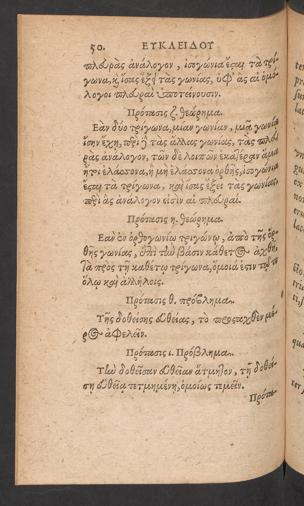 50. ΕΥΚΛΕΙΔΟΥ
πλευρὰς ἀνάλογον, ἰσογώνια ἔσται τὰ τρί-
γωνα, καὶ ἴσας ἕξει τὰς γωνίας, ὑφ' ἃς αἱ ὁμό-
λογοι πλευραὶ ὑποτείνουσιν.
Πρότασις ζ. θεώρημα.
Ἐὰν δύο τρίγωνα, μίαν γωνίαν, μιᾷ γωνίᾳ
ἴσην ἔχῃ, περὶ δὲ τὰς ἄλλας γωνίας, τὰς πλευ-
ρὰς ἀνάλογον, τῶν δὲ λοιπῶν ἑκατέραν ἅμα
ἤτοι ἐλάσσονα, ἢ μὴ ἐλάσσονα ὀρθῆς, ἰσογώνια
ἔσται τὰ τρίγωνα, καὶ ἴσας ἕξει τὰς γωνίας,
περὶ ἃς ἀνάλογον εἰσὶν αἱ πλευραί.
Πρότασις η. θεώρημα.
Ἐὰν ἐν ὀρθογωνίῳ τριγώνῳ, ἀπὸ τῆς ὀρ-
θῆς γωνίας, ἐπὶ τὴν βάσιν κάθετος ἀχθῇ,
τὰ πρὸς τῇ καθέτῳ τρίγωνα, ὅμοιά ἐστι τῷ τε
ὅλῳ καὶ ἀλλήλοις.
Πρότασις θ. πρόβλημα.
Τῆς δοθείσης εὐθείας, τὸ προσταχθὲν μέ-
ρος ἀφελεῖν.
Πρότασις ι. Πρόβλημα.
Τὴν δοθεῖσαν εὐθεῖαν ἄτμητον, τῇ δοθεί-
σῃ εὐθείᾳ τετμημένῃ, ὁμοίως τεμεῖν.
Πρότα-